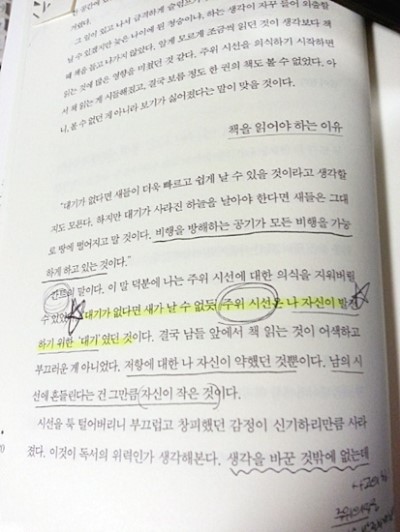 그 일이 있고 나서 급격하게
날 수 있겠지만 늦은 나이에 원 청승이냐, 하는 생각이 자꾸 들어 외출할
때 책을 들고 나가지 않았다. 알게 모르게 조금씩 읽던 것이 생각보다 책
읽는 것에 많은 영향을 미쳤던 것 같다. 주위 시선을 의식하기 시작하면
서 책 읽는 게 시들해졌고, 결국 보름 정도 한 권의 책도 볼 수 없었다. 아
니, 볼 수 없던 게 아니라 보기가 싫어졌다는 말이 맞을 것이다.
책을 읽어야 하는 이유
“대기가 없다면 새들이 더욱 빠르고 쉽게 날 수 있을 것이라고 생각할
지도 모른다. 하지만 대기가 사라진 하늘을 날아야 한다면 새들은 그대
로 땅에 떨어지고 말 것이다. 비행을 방해하는 공기가 모든 비행을 가능
하게 하고 있는 것이다.”
칸트의 말이다. 이 말 덕분에 나는 주위 시선에 대한 의식을 지워버릴
수 있었다. 대기가 없다면 새가 날 수 없듯 주위 시선은 나 자신이 발전
하기 위한 ‘대기’였던 것이다. 결국 남들 앞에서 책 읽는 것이 어색하고
부끄러운 게 아니었다. 저항에 대한 나 자신이 약했던 것뿐이다. 남의 시
선에 흔들린다는 건 그만큼 자신이 작은 것이다.
시선을 툭 털어버리니 부끄럽고 창피했던 감정이 신기하리만큼 사라
졌다. 이것이 독서의 위력인가 생각해본다. 생각을 바꾼 것밖에 없는데